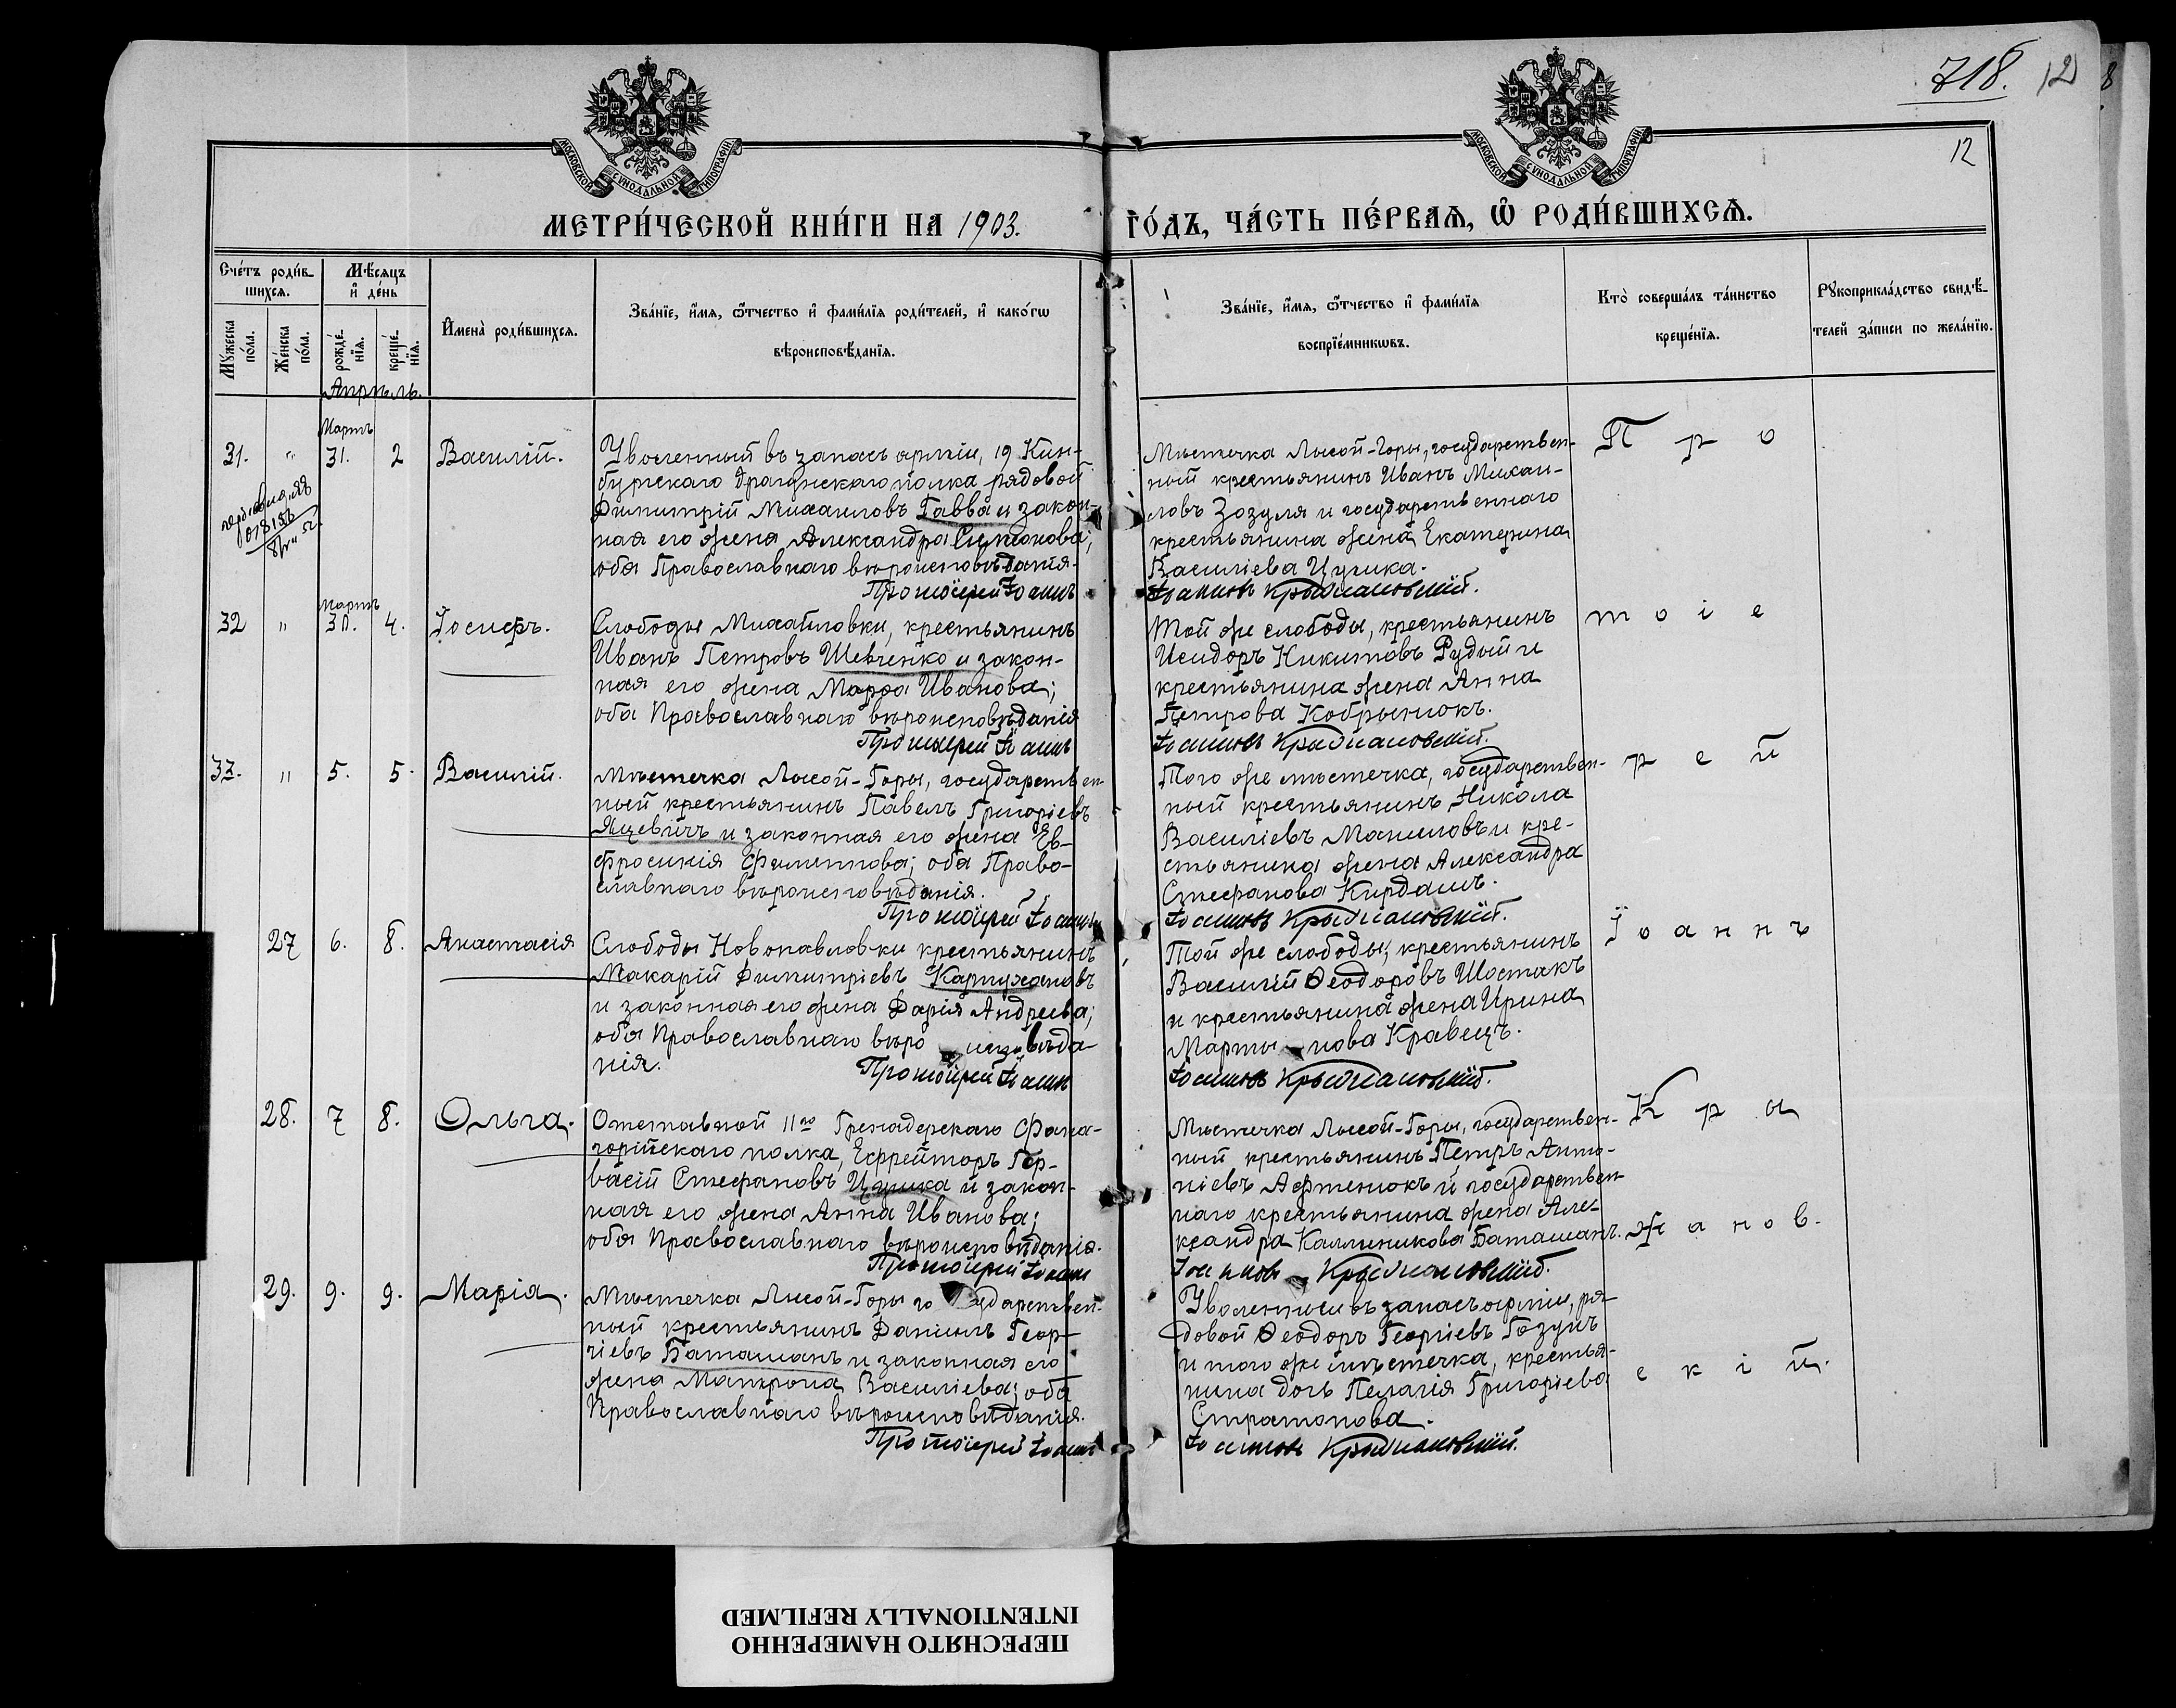 718.
12
12
МОСКОВСКОЙ СѴНОДАЛЬНОЙ ТИПОГРАФІИ
МОСКОВСКОЙ СѴНОДАЛЬНОЙ ТИПОГРАФІИ
МЕТРИ́ЧЕСКОЙ КНИ́ГИ НА 1903. ГО́ДЪ, ЧА́СТЬ ПЕ́РВАѦ, Ѡ҆ РОДИ́ВШИХСѦ.
Сче́тъ роди́вшихсѧ.
Мꙋ́жеска по́ла.
Же́нска по́ла.
Мѣ́сѧцъ и҆ де́нь
рожде́нїѧ.
креще́нїѧ.
И҆мена̀ роди́вшихсѧ.
Зва́нїе, и҆́мѧ, ѻ҆́тчество и҆ фамѝлїѧ роди́телей, и҆ како́гѡ
вѣроисповѣ́данїѧ.
Зва́нїе, и҆́мѧ, ѻ҆́тчество и҆ фамѝлїѧ
воспрїе́мникѡвъ.
Кто̀ соверша́лъ та́инство
креще́нїѧ.
Рꙋкоприкла́дство свидѣ́телей за́писи по жела́нїю.
Апрѣль.
Мартъ
31. " 31. 2 Василій.
Уволенный въ запасъ арміи, 19 Кин-
бургскаго драгунскаго полка рядовой
Димитрій Михаиловъ Гавва и закон-
ная его жена Александра Симонова;
оба Православнаго вѣроисповѣданія.
Протоіерей Іоаннъ
Мѣстечка Лысой-Горы, государствен-
ный крестьянинъ Иванъ Михаи-
ловъ Зозуля и государственнаго
крестьянина жена Екатерина
Василіева Цушка.
Іоанновъ Крыжановскій.
Мартъ
32 " 30. 4. Іосифъ.
Слободы Михайловки, крестьянинъ
Иванъ Петровъ Шевченко и закон-
ная его жена Марѳа Иванова;
оба Православнаго вѣроисповѣданія
Протоіерей Іоаннъ
Той же слободы, крестьянинъ
Исидоръ Никитовъ Рудый и
крестьянина жена Анна
Петрова Кобрынюкъ.
Іоанновъ Крыжановскій.
33. " 5. 5. Василій.
Мѣстечка Лысой-Горы, государствен-
ный крестьянинъ Павелъ Григоріевъ
Яцевичъ и законная его жена Ев-
фросинія Филиппова; оба Право-
славнаго вѣроисповѣданія.
Протоіерей Іоаннъ
Того же мѣстечка, государствен-
ный крестьянинъ Никола
Василіевъ Маниловъ и кре-
стьянина жена Александра
Стефанова Кирдашъ.
Іоанновъ Крыжановскій.
27 6. 8. Анастасія
Слободы Новопавловки крестьянинъ
Макарій Димитріевъ Картухановъ
и законная его жена Дарія Андреева;
оба Православнаго вѣроисповѣда-
нія.
Протоіерей Іоаннъ
Той же слободы, крестьянинъ
Василій Ѳеодоровъ Шостакъ
и крестьянина жена Ирина
Мартынова Кравецъ.
Іоанновъ Крыжановскій.
28. 7 8. Ольга.
Отставной 11го Гренадерскаго Фана-
горійскаго полка, Ефрейторъ Гер-
васій Стефановъ Цушка и закон-
ная его жена Анна Иванова;
оба Православнаго вѣроисповѣданія.
Протоіерей Іоаннъ
Мѣстечка Лысой-Горы, государствен-
ный крестьянинъ Петръ Анто-
ніевъ Афтенюкъ и государствен-
наго крестьянина жена Але-
ксандра Каллиникова Баташанъ.
Іоанновъ Крыжановскій.
29. 9. 9. Марія.
Мѣстечка Лысой-Горы государствен-
ный крестьянинъ Даніилъ Геор-
гіевъ Баташанъ и законная его
жена Матрона Василіева; оба
Православнаго вѣроисповѣданія.
Протоіерей Іоаннъ
Уволенный въ запасъ арміи, ря-
довой Ѳеодоръ Георгіевъ Гозунъ
и того же мѣстечка, крестья-
нина дочь Пелагія Григоріева
Стратонова.
Іоанновъ Крыжановскій.
П р о
т о і е
р е й
І о а н н ъ
К р ы
ж а н о в-
с к і й.
ПЕРЕСНЯТО НАМЕРЕННО
INTENTIONALLY REFILMED